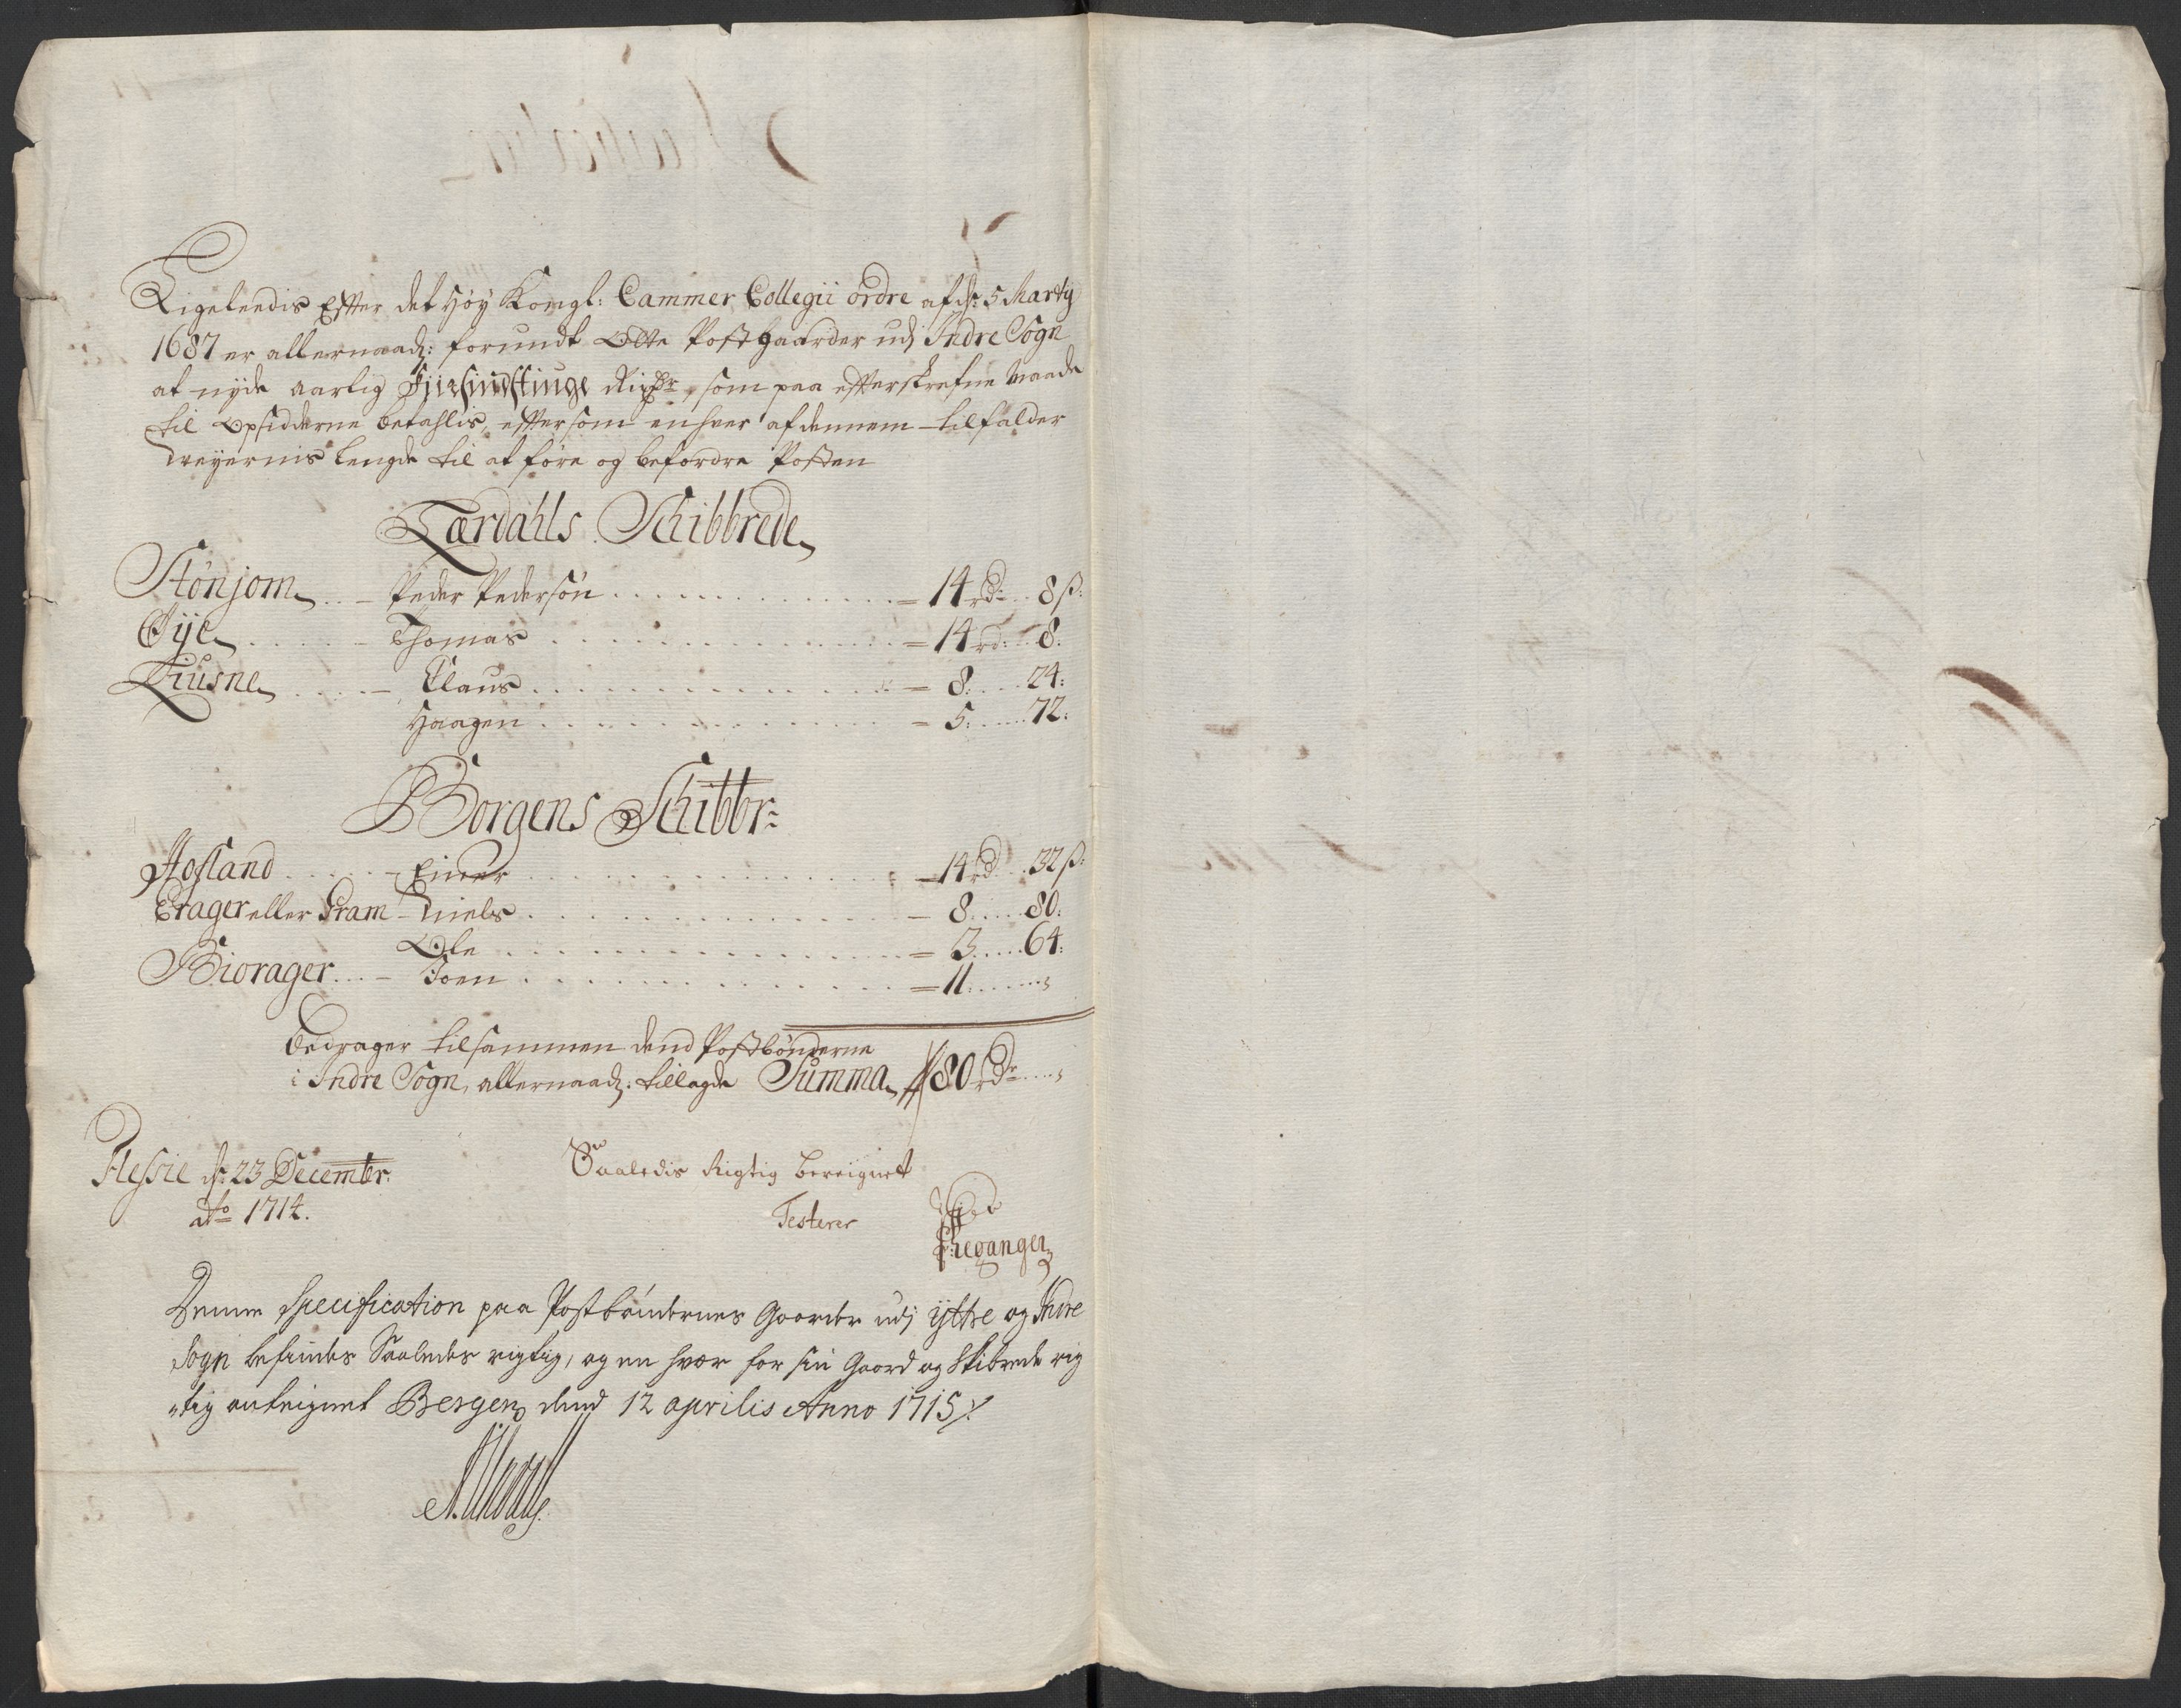 Ligeleedis Efter det Høy Kongl: Cammer Collegii ordre af d: 5 Marty
1687 er allernaad: forundt Otte Postgaarder udj Indre Sogn
at nyde aarlig Fiirsindstiuge Rixdr, som paa efterskrefne Maade
til Opsidderne betahlis, eftersom enhver af dennem tilfalder
Weyernis lengde til at føre og befordre Posten
Lærdahls Schibbrede
Stønjom - Peder Pedersøn = 14 rdr 8 ß:
Øye - Thomas = 14 rd: 8:
Liusne - Claus = 8: 24:
Haagen = 5: 72:
Borgens Schibbr:
Hofland - Einer = 14 rd 32 ß:
Erager eller Gram - Niels = 8: 80:
Ole = 3: 64:
Biorager - Joen = 11:
Bedrager tilsammen dend Postbønderne
i Indre Sogn, allernaad: tillagde Summa 80 rdr
Flessie d: 23 Decembr:
Ao 1714.
Saaledis Rigtig bereignet
Testerer
Denne Specification paa Postbøndernes Gaarder udj ÿttre og Indre
Sogn befindes Saaledes rigtig, og en hver for sin Gaard og Skibrede rig
„tig anteignet Bergen dend 12 aprilis Anno 1715